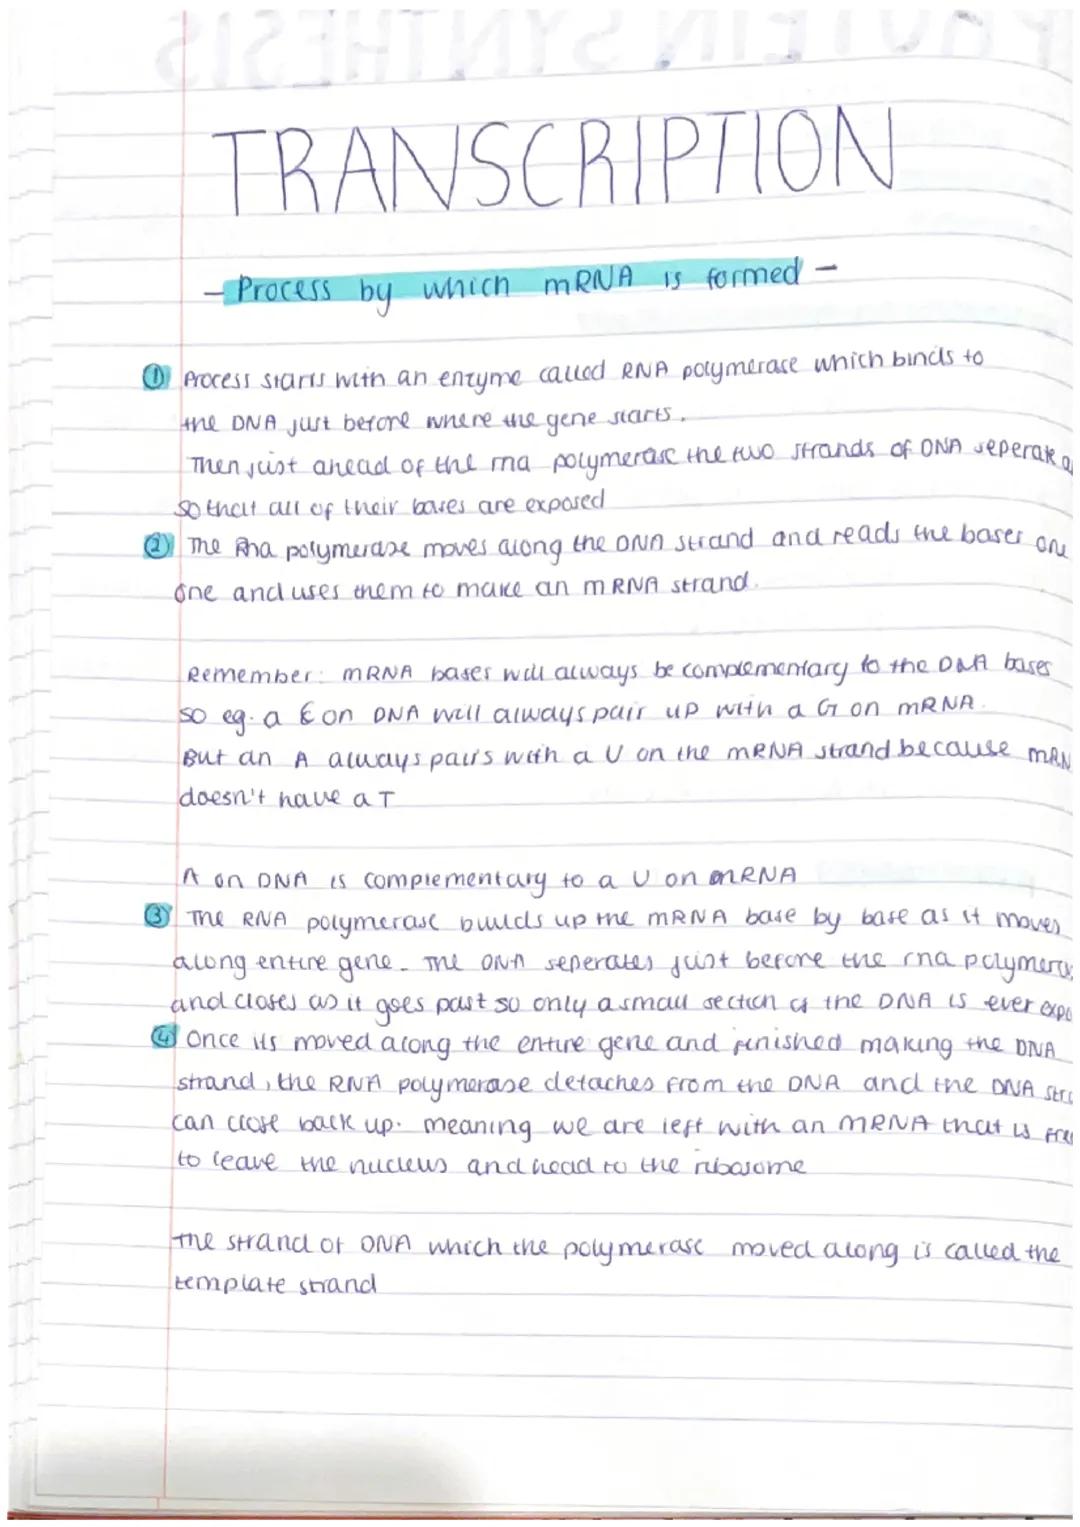 PROTEIN SYNTHESIS
TRANSCRIPTION
- Process by which mRNA is formed -
① Process starts with an enzyme called RNA polymerase which binds to
the DNA just before where the gene starts.
Then just ahead of the rna polymerase the two strands of DNA seperate
so that all of their bases are exposed
② The Rna polymerase moves along the DNA strand and reads the bases one
one and uses them to make an mRNA strand.
Remember: mRNA bases will always be complementary to the DNA bases
so eg. a C on DNA will always pair up with a G on mRNA.
But an A always pairs with a U on the mRNA strand because mRN
doesn't have a T
A on DNA is complementary to a U on mRNA
③ The RNA polymerase builds up the mRNA base by base as it moves
along entire gene. The DNA seperates just before the rna polymera
and closes as it goes past so only a small section of the DNA is ever expo
④ Once its moved along the entire gene and finished making the DNA
strand, the RNA polymerase detaches from the DNA and the DNA stra
can close back up. meaning we are left with an mRNA that is free
to leave the nucleus and head to the ribosome
the strand of DNA which the polymerase moved along is called the
template strand